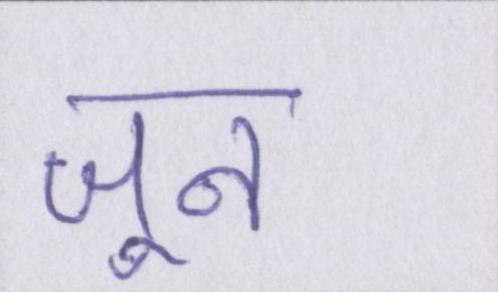 जून